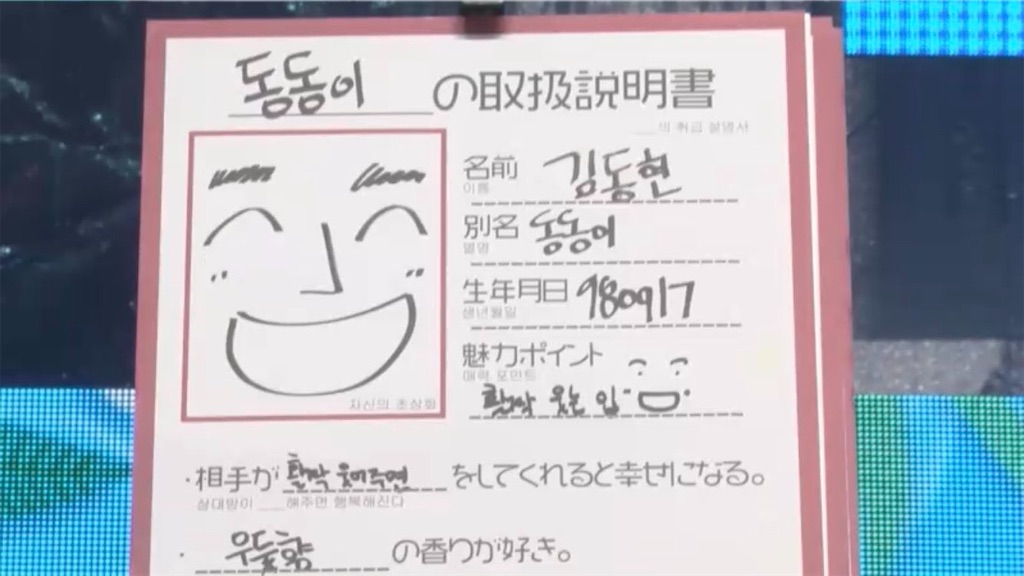 동동이の取扱説明書
___의 취급 설명서
자신의 초상화
名前 김동현
이름
別名 동동이
별명
生年月日 980917
생년월일
魅力ポイント
매력 포인트
활짝 웃는 입
・相手が 활짝 웃어주면 をしてくれると幸せになる。
상대방이 ___해주면 행복해진다
・우듯향 の香りが好き。